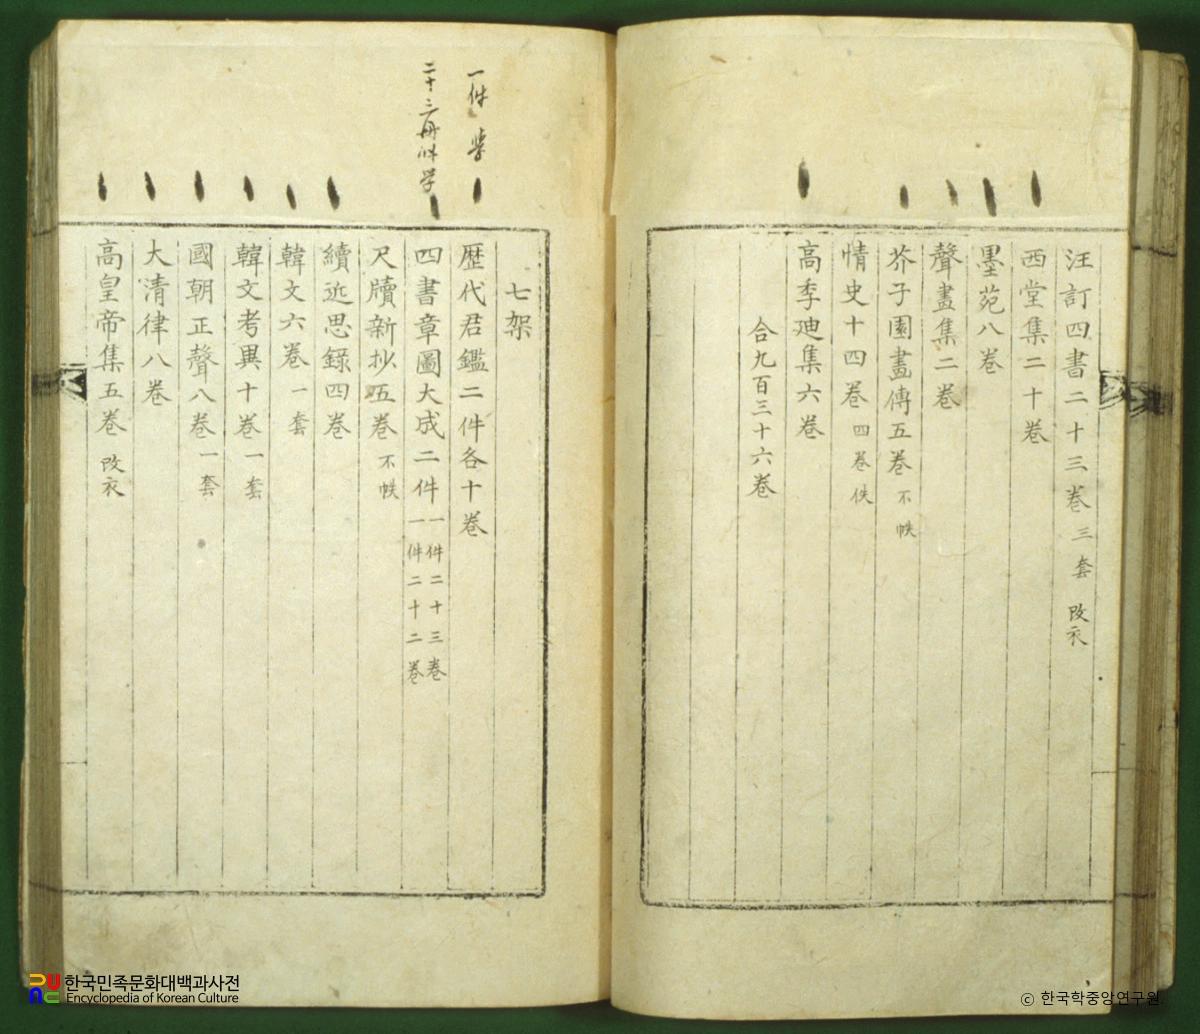 汪訂四書二十三卷 三套 改衣
西堂集二十卷
墨苑八卷
聲畫集二卷
芥子園畫傳五卷 不帙
情史十四卷 四卷佚
高季迪集六卷
合九百三十六卷
七架
一件
歷代君鑑二件各十卷
二十三冊
四書章圖大成二件 一件二十三卷
一件二十二卷
尺牘新抄五卷 不帙
續近思錄四卷
韓文六卷 一套
韓文考異十卷 一套
國朝正聲八卷 一套
大清律八卷
高皇帝集五卷 改衣
한국민족문화대백과사전
Encyclopedia of Korean Culture
ⓒ 한국학중앙연구원